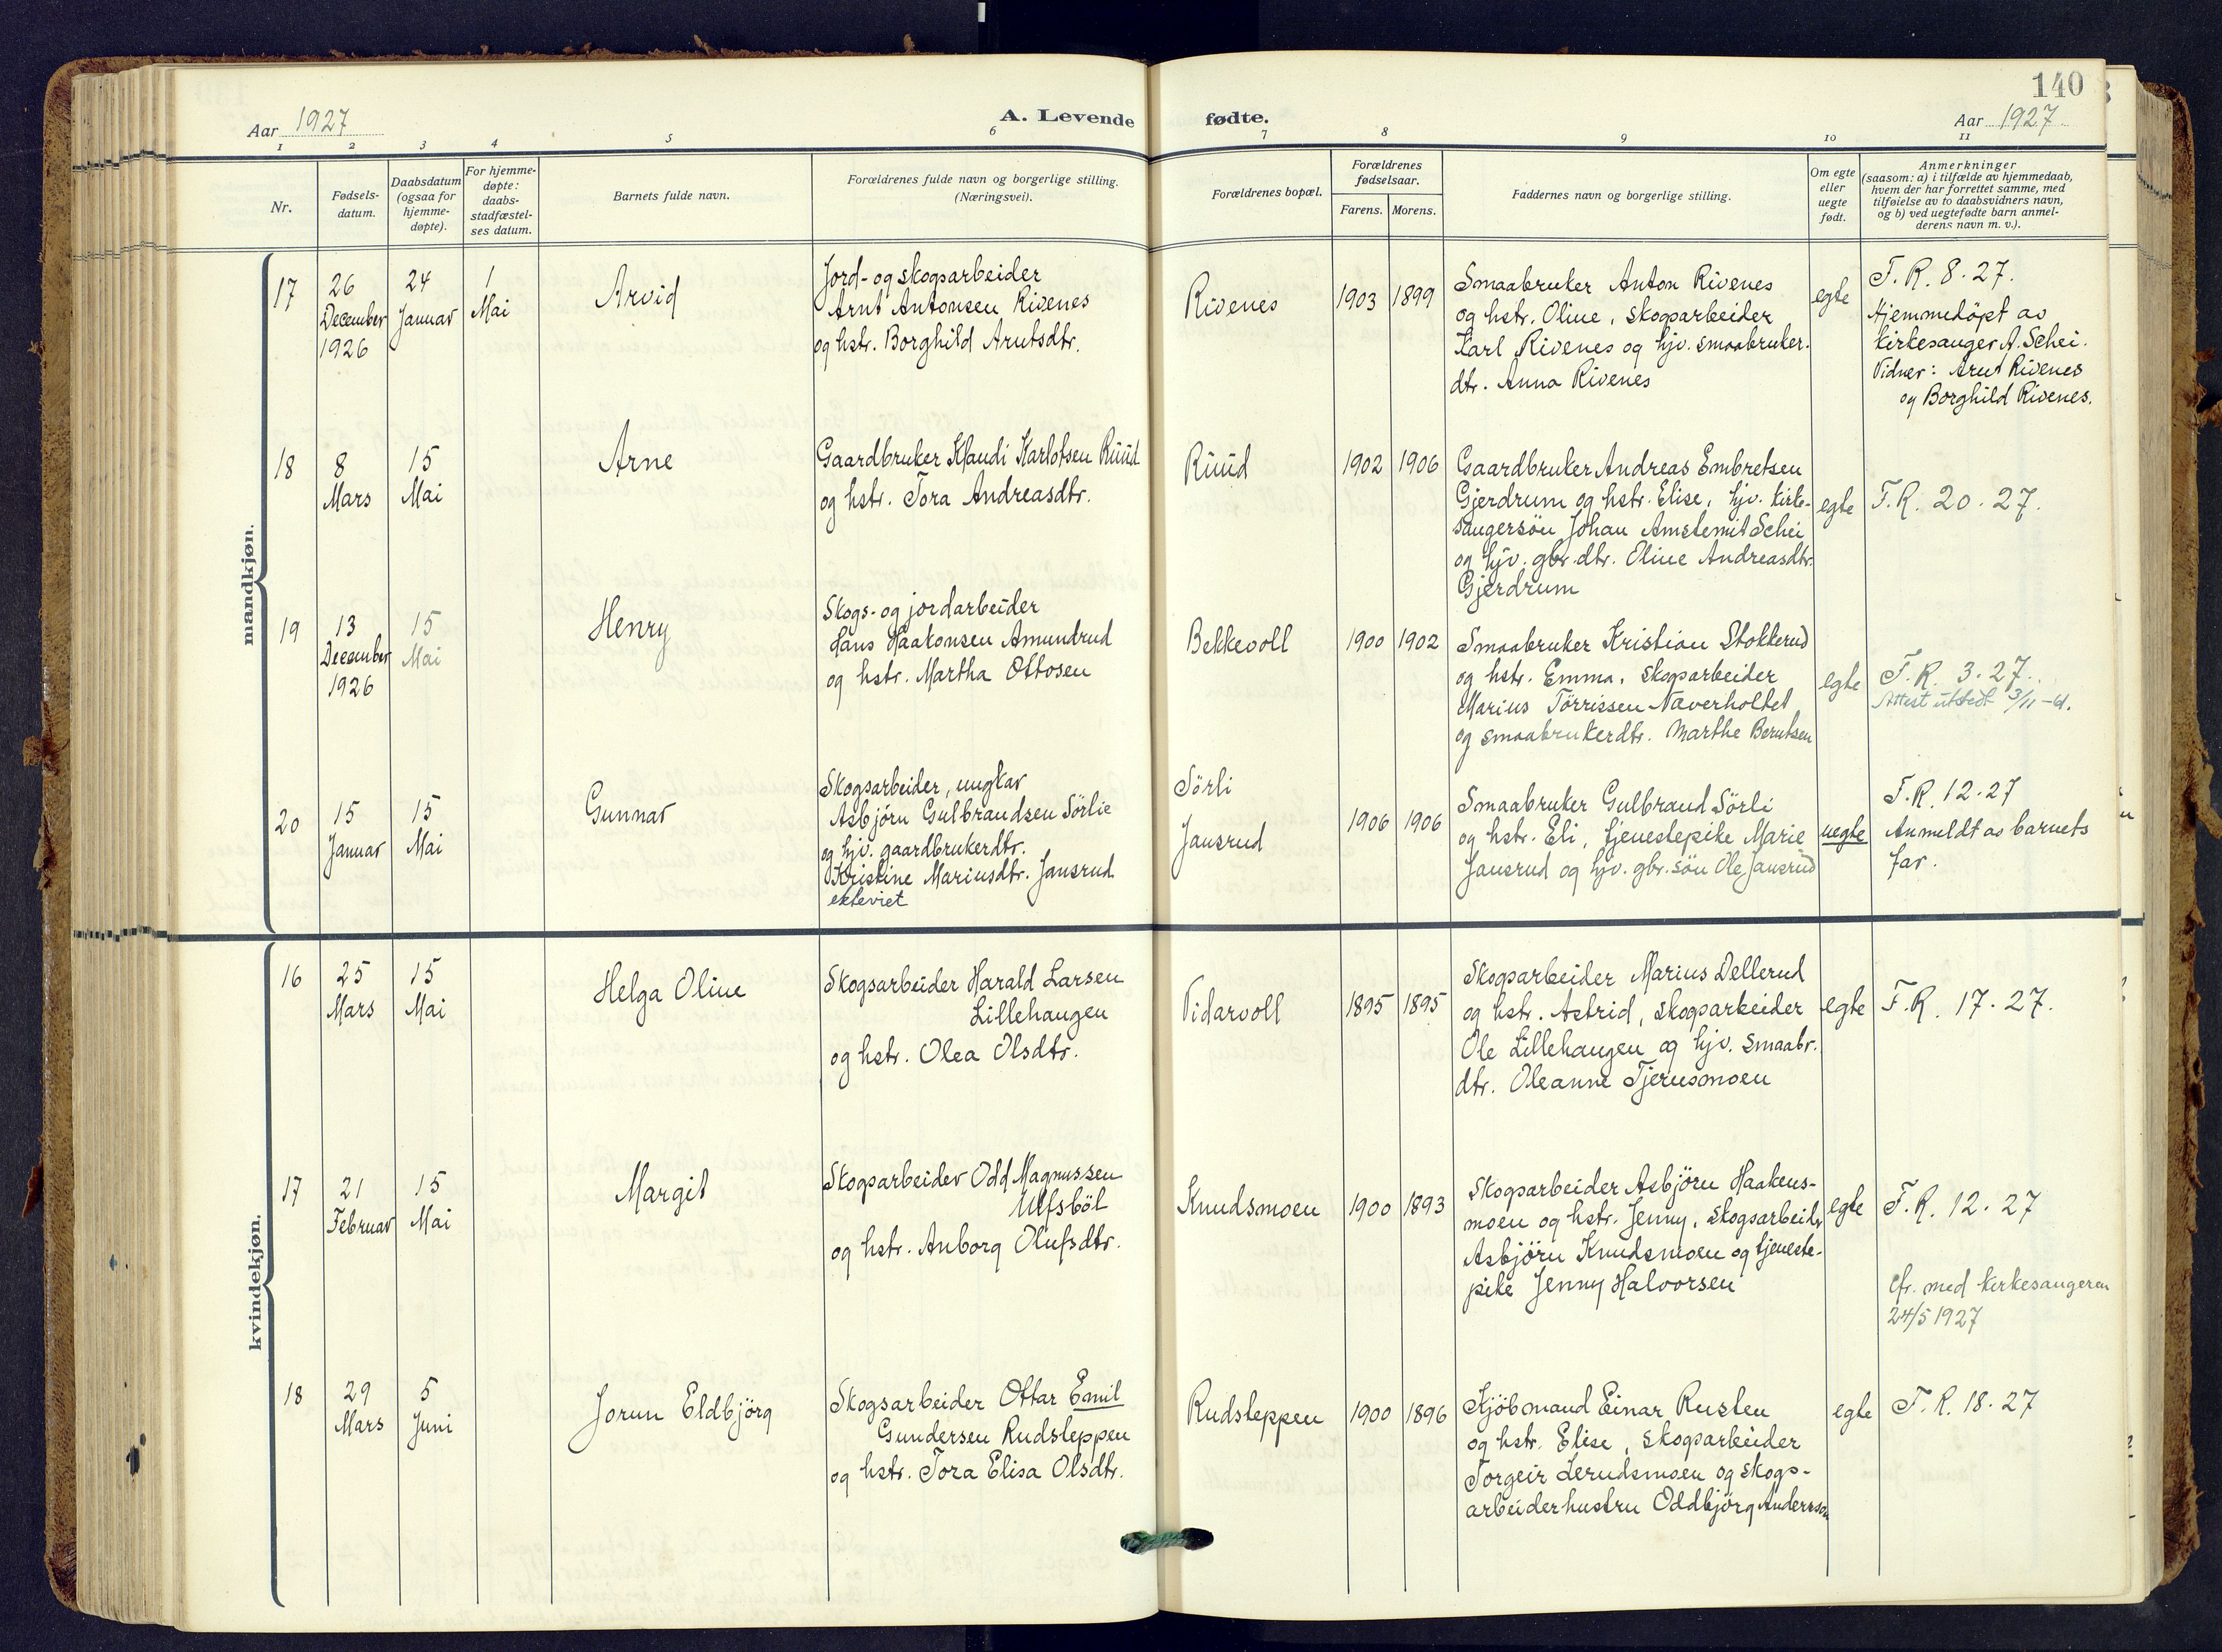 140
Aar 1927
A. Levende
fødte.
Aar 1927
1 2 3 4 5 6 7 8 9 10 11
Nr.
Fødsels-
datum.
Daabsdatum
(ogsaa for
hjemme-
døpte).
For hjemme-
døpte:
daabs-
stadfæstel-
ses datum.
Barnets fulde navn.
Forældrenes fulde navn og borgerlige stilling.
(Næringsvei).
Forældrenes bopæl.
Forældrenes
fødselsaar.
Farens. Morens.
Faddernes navn og borgerlige stilling.
Om egte
eller
uegte
født.
Anmerkninger
(saasom: a) i tilfælde av hjemmedaab,
hvem der har forrettet samme, med
tilføielse av to daabsvidners navn,
og b) ved uegtefødte barn anmel-
derens navn m. v.).
mandkjøn.
17
26
December
1926
24
Januar
1
Mai
Arvid
Jord- og skogsarbeider
Arnt Antonsen Rivenes
og hstr. Borghild Arntsdtr.
Rivenes
1903
1899
Smaabruker Anton Rivenes
og hstr. Oline, skogsarbeider
Karl Rivenes og hjv. smaabruker-
dtr. Anna Rivenes
egte
F. R. 8. 27.
Hjemmedöpt av
kirkesanger A. Schei.
Vidner: Arnt Rivenes
og Borghild Rivenes.
18
8
Mars
15
Mai
Arne
Gaardbruker Klaudi Karlotsen Ruud
og hstr. Tora Andreasdtr.
Ruud
1902
1906
Gaardbruker Andreas Embretsen
Gjerdrum og hstr. Elise, hjv. kirke-
sangersön Johan Schei
og hjv. gbr. dtr. Oline Andreasdtr.
Gjerdrum
egte
F. R. 20. 27.
19
13
December
1926
15
Mai
Henry
Skogs- og jordarbeider
Hans Haakonsen Amundrud
og hstr. Martha Ottosen
Bekkevoll
1900
1902
Smaabruker Kristian Stokkerud
og hstr. Emma, skogsarbeider
Marius Törrissen Naverholtet
og smaabrukerdtr. Marthe Berntsen
egte
F. R. 3. 27.
Attest utstedt 3/11 - 41.
20
15
Januar
15
Mai
Gunnar
Skogsarbeider, ungkar
Asbjörn Gulbrandsen Sörlie
og hjv. gaardbrukerdtr.
Kristine Mariusdtr. Jansrud
ekteviet
Sörli
Jansrud
1906
1906
Smaabruker Gulbrand Sörli
og hstr. Eli, tjenestepike Marie
Jansrud og hjv. gbr. sön Ole Jansrud
uegte
F. R. 12. 27
Anmeldt av barnets
far.
kvindekjøn.
16
25
Mars
15
Mai
Helga Oline
Skogsarbeider Harald Larsen
Lillehaugen
og hstr. Olea Olsdtr.
Vidarvoll
1895
1895
Skogsarbeider Marius Dellerud
og hstr. Astrid, skogsarbeider
Ole Lillehaugen og hjv. smaabr.
dtr. Oleanne Tjernsmoen
egte
F. R. 17. 27.
17
21
Februar
15
Mai
Margit
Skogsarbeider Odd Magnussen
Ulfsböl
og hstr. Anborg Olufsdtr.
Knudsmoen
1900
1893
Skogsarbeider Asbjörn Haakens-
moen og hstr. Jenny, skogsarbeider
Asbjörn Knudsmoen og tjeneste-
pike Jenny Halvorsen
egte
F. R. 12. 27
Cfr. med kirkesangeren
24/5 1927
18
29
Mars
5
Juni
Jorun Eldbjörg
Skogsarbeider Ottar Emil
Gundersen Rudsleppen
og hstr. Tora Elisa Olsdtr.
Rudsleppen
1900
1896
Kjöbmand Einar Rusten
og hstr. Elise, skogsarbeider
Torgeir Lerudsmoen og skogs-
arbeiderhustru Oddbjörg Anderssen
egte
F. R. 18. 27